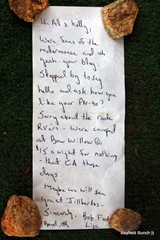 Hi Al & Kelly,
Were fans of the
restormance and oh
yeah - your blog
Stopped by to say
hello and ask how you
like your PW-40?
Sorry about the rude
RVers - were camped
at Bow Willow @
15 a night for nothing
- that CA these
days.
maybe we will see
you at Jillhertos -
Sincerely, Bob
Bayfield Bunch